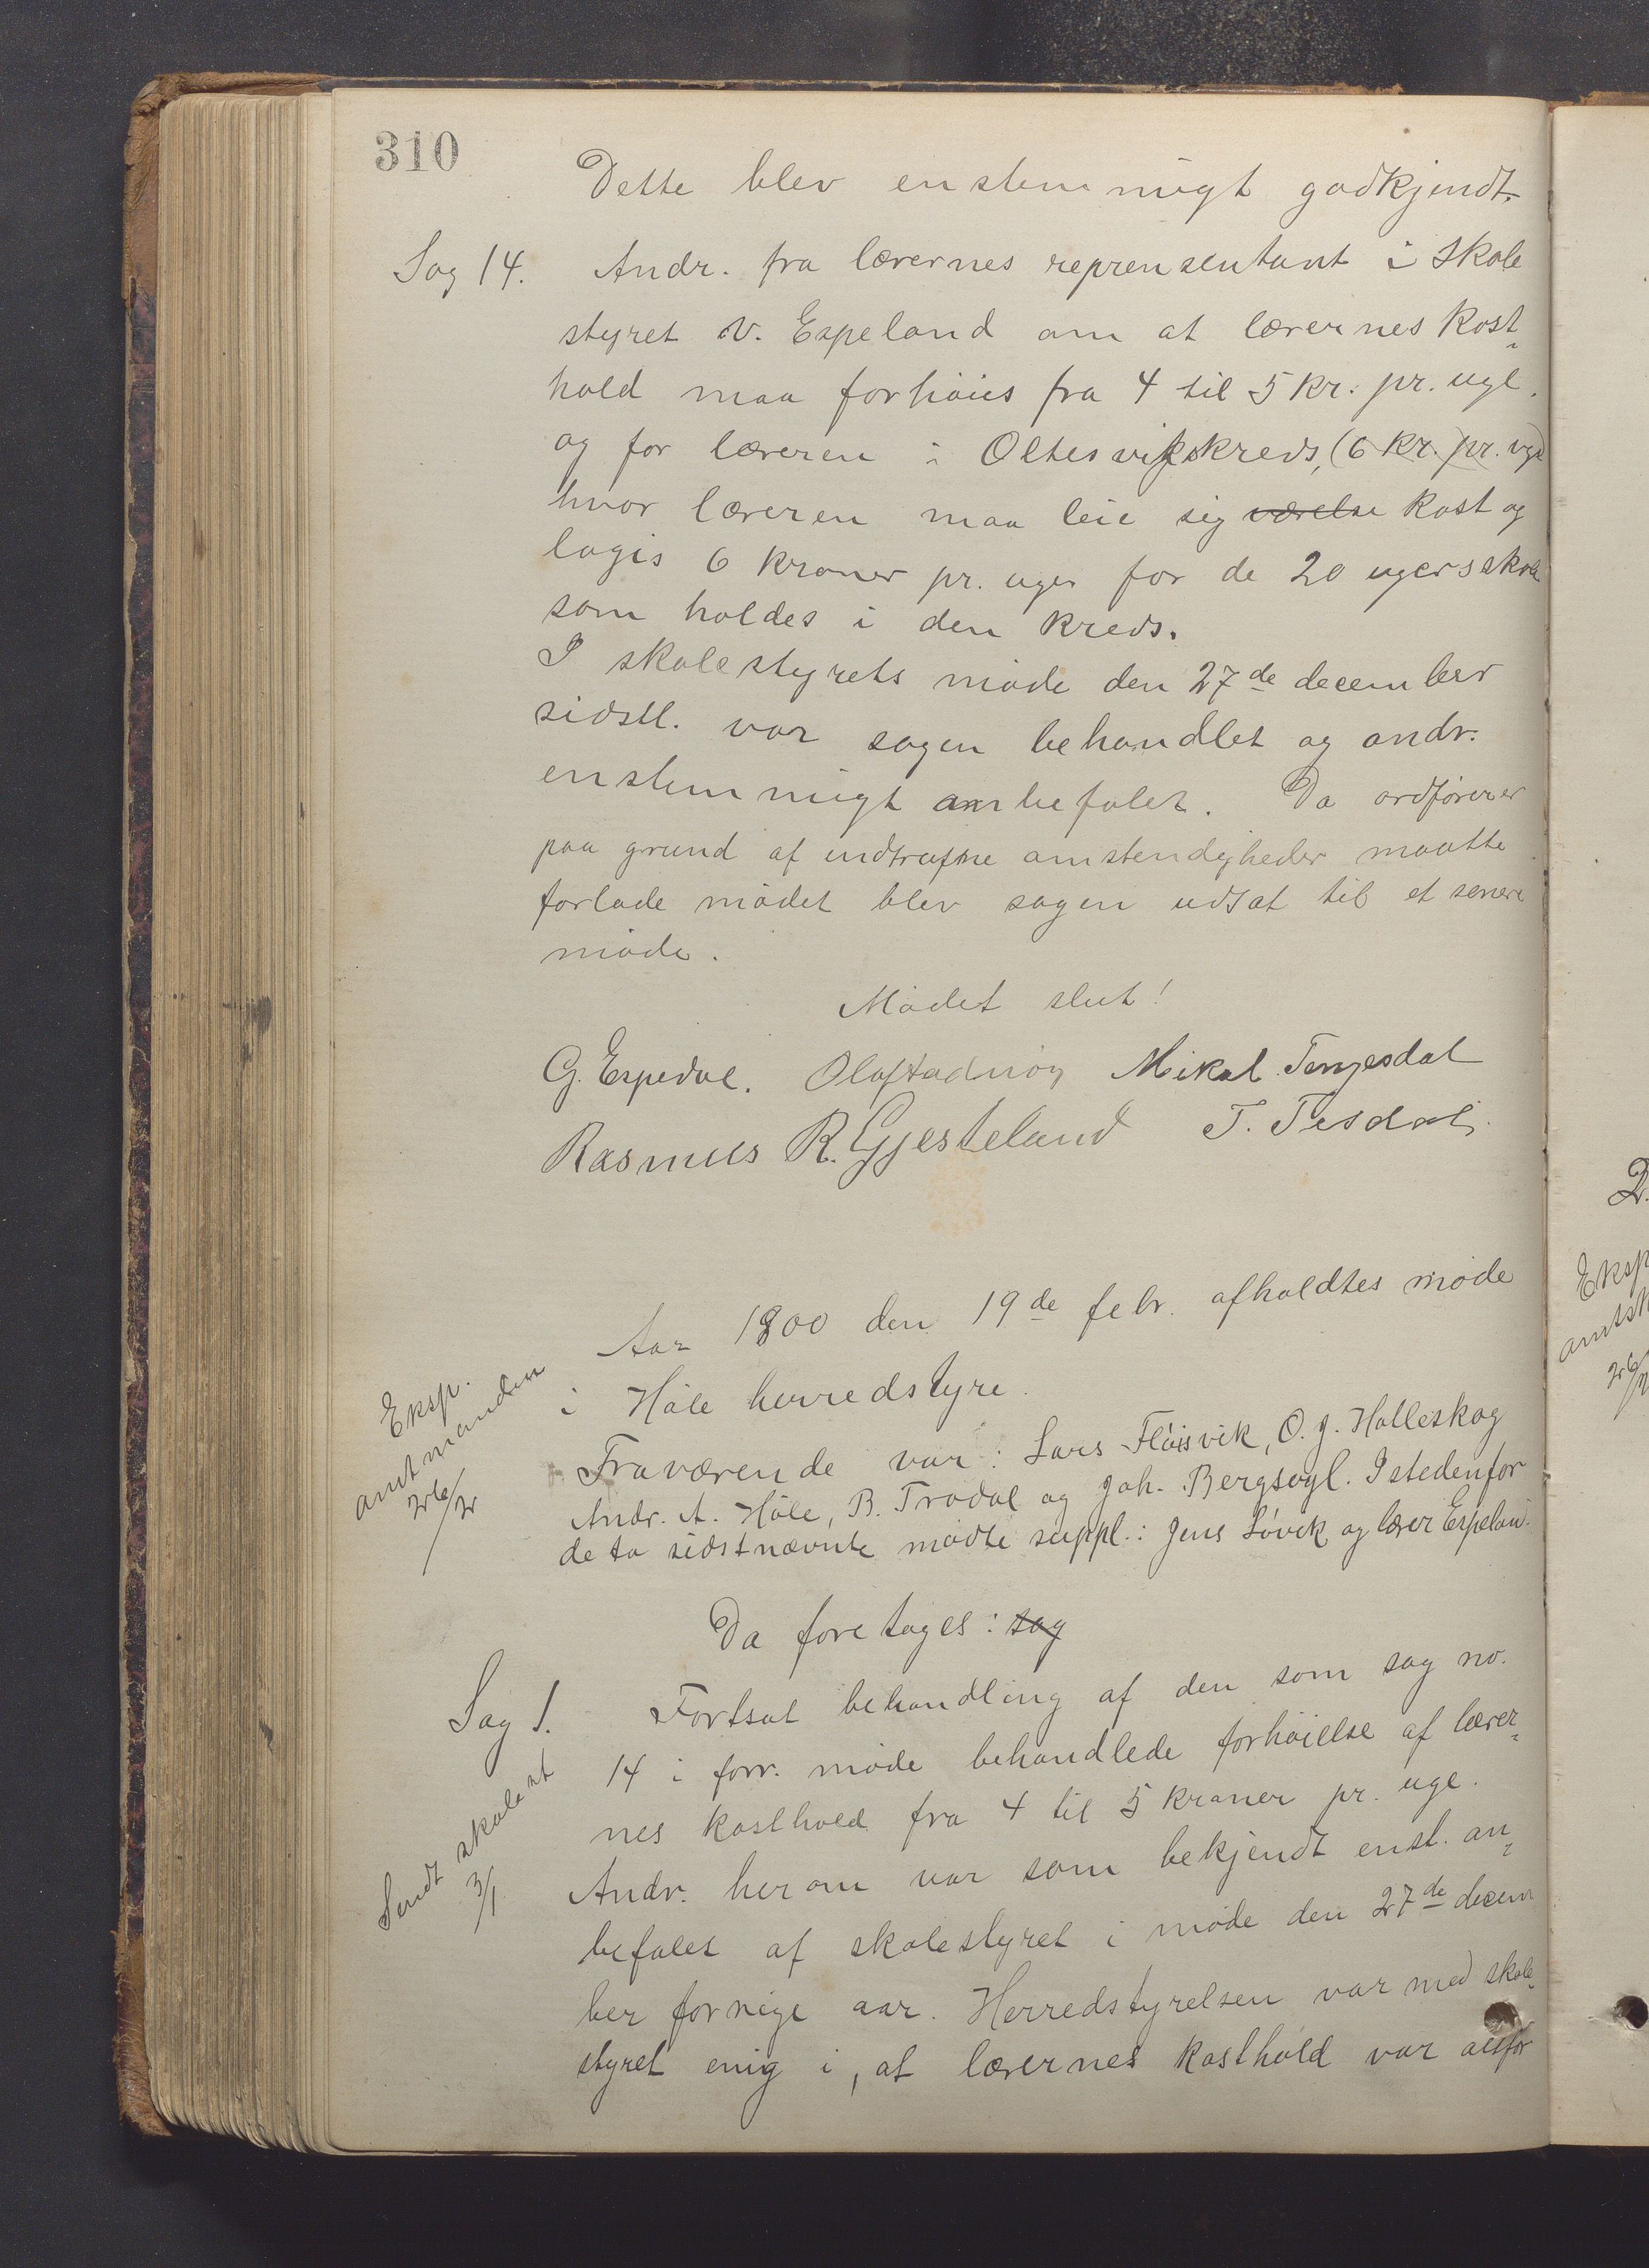 310
Dette blev enstemmigt godkjendt.
Sag 14. Andr. fra lærernes reprensentant i skole
styret V. Espeland om at lærernes kost-
hold maa forhöies fra 4 til 5 kr. pr. uge.
og for læreren i Oltesvikskreds, (6 kr. pr. uge)
hvor læreren maa leie sig værelse kost og
logis 6 kroner pr. uger for de 20 ugers skole
som holdes i den kreds.
I skolestyrets möde den 27de december
sidstl. var sagen behandlet og andr.
enstemmigt anbefalet. Da ordförerer
paa grund af indtrufne omstendigheder maatte
forlade mödet blev sagen udsat til et senere
möde.
Mödet slut!
G. Espedal. Olaf Mikal Tengesdal
Rasmus R. Gjesteland T. Tesdal
Aar 1900 den 19de febr. afholdtes möde
i Höle herredstyre.
Eksp.
amtmanden
26/2
Fraværende var: Lars Flöisvik, O. J. Holleskog
Andr. A. Höle, B. Trodal og Joh. Bergsagl. Istedenfor
de to sidstnævnte mödte suppl.: Jens Lövik og lærer Espeland.
Da foretoges: sag
Sag 1. Fortsat behandling af den som sag no.
14 i forr. möde behandlede forhöielse af lærer-
nes kosthold fra 4 til 5 kroner pr. uge.
Sendt skolest
3/1
Andr. herom var som bekjendt enst. an-
befalet af skolestyret i möde den 27de decem
ber forrige aar. Herredstyrelsen var med skole-
styret enig i, at lærernes kosthold var altfor
2.
Eksp
amtsk
26/2